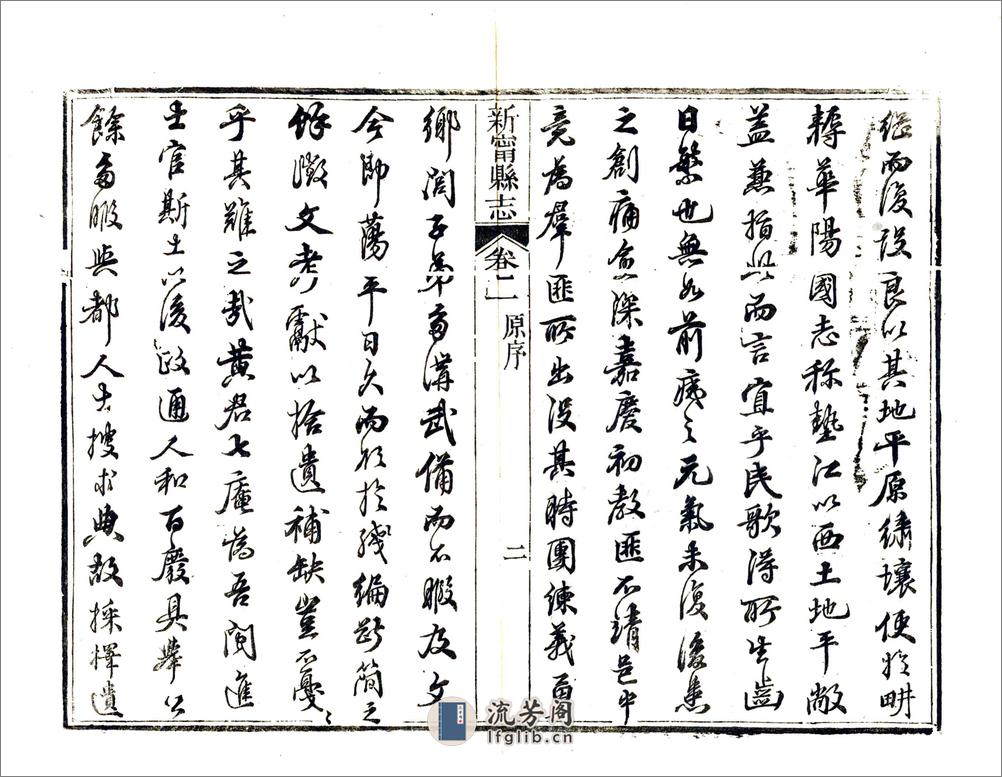 繼而復設良以其地平原綉壤便於畊
耨華陽國志称墊江以西土地平敞
盖兼指此而言宜乎民歌得所生齒
日繁也無如前痍之元氣未復後患
之創痛愈深嘉慶初教匪不靖邑中
竟為羣匪所出没其時團練義面
新甯縣志 卷二 原序 二
鄉閭子弟多溝武備而不暇及文
今即蕩平日久而欲於殘編断简之
餘徵文考獻以拾遺補缺豈不戛戛
乎其難之哉黄君七廬為吾閩進
士官斯土以後政通人和百廢具舉公
餘多暇與都人士搜求典故採擇遺
流芳阁
lfglib.cn